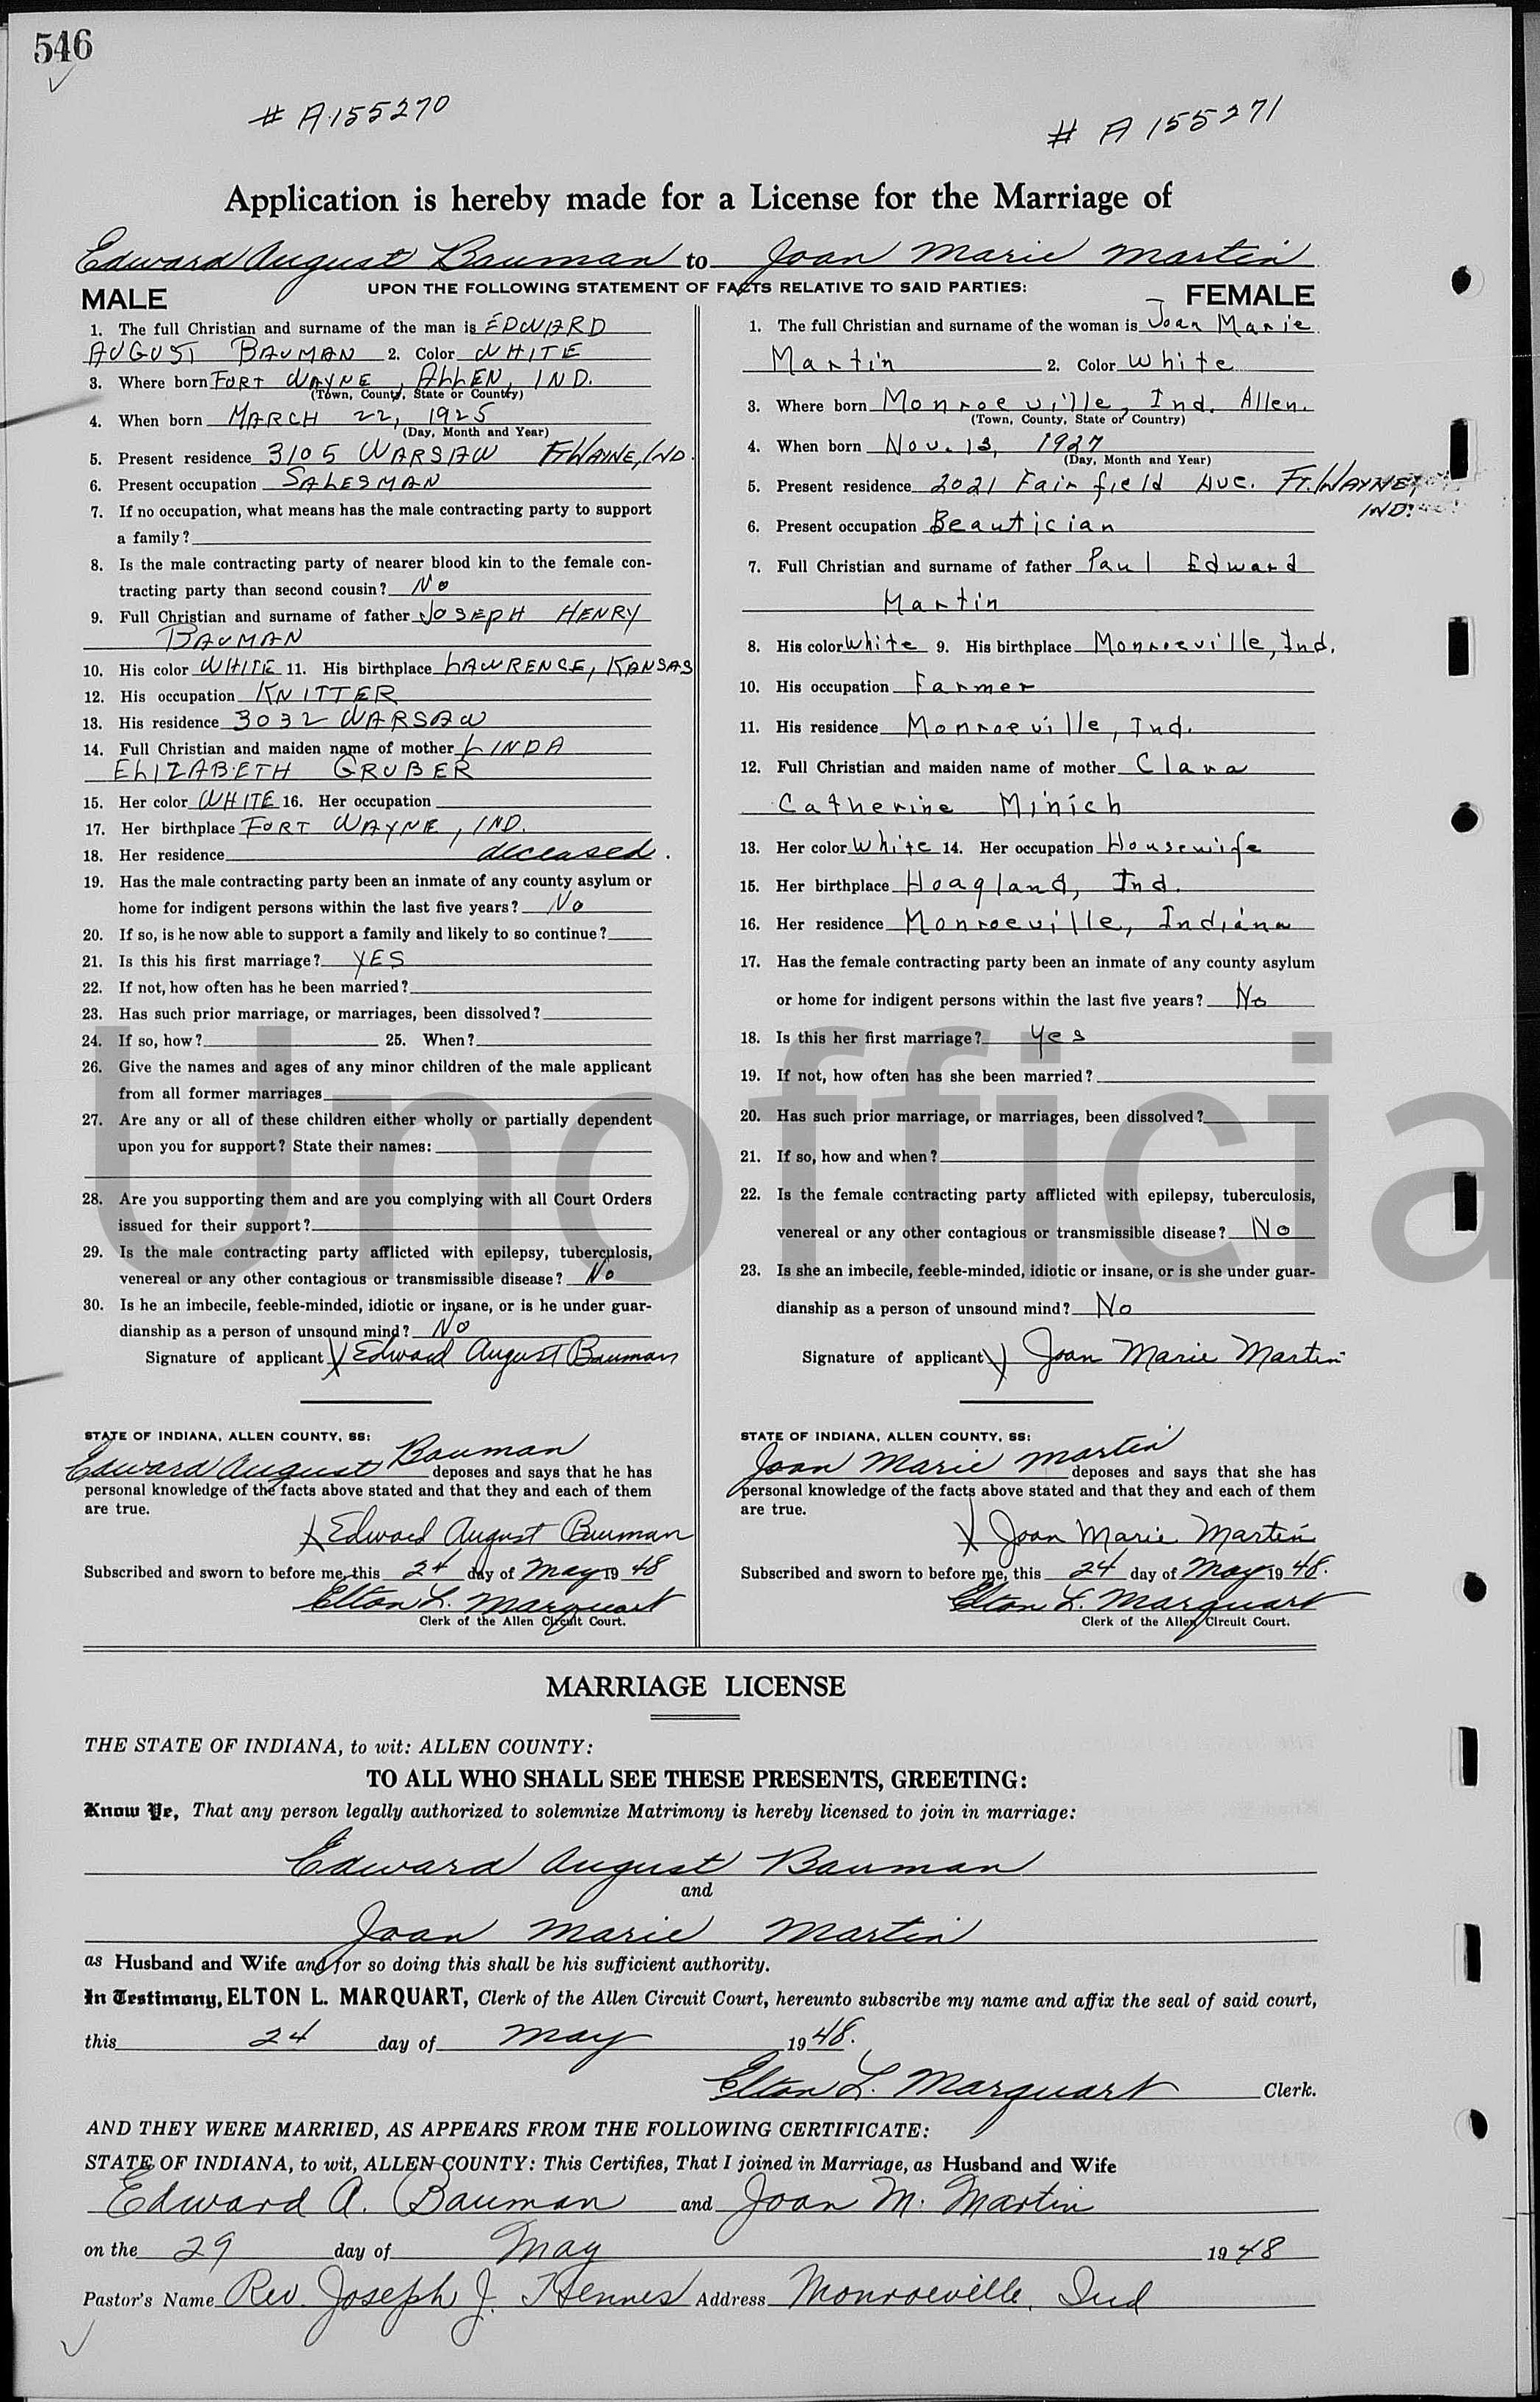 546
# A155270
# A155271
Application is hereby made for a License for the Marriage of
Edward August Bauman to Joan Marie Martin
UPON THE FOLLOWING STATEMENT OF FACTS RELATIVE TO SAID PARTIES:
MALE
1. The full Christian and surname of the man is EDWARD
AUGUST BAUMAN 2. Color WHITE
3. Where born FORT WAYNE, ALLEN, IND.
(Town, County, State or Country)
4. When born MARCH 22, 1925
(Day, Month and Year)
5. Present residence 3105 WARSAW FT WAINE, IND.
6. Present occupation SALESMAN
7. If no occupation, what means has the male contracting party to support
a family?
8. Is the male contracting party of nearer blood kin to the female con-
tracting party than second cousin? No
9. Full Christian and surname of father JOSEPH HENRY
BAUMAN
10. His color WHITE 11. His birthplace LAWRENCE, KANSAS
12. His occupation KNITTER
13. His residence 3032 WARSAW
14. Full Christian and maiden name of mother LINDA
ELIZABETH GRUBER
15. Her color WHITE 16. Her occupation
17. Her birthplace FORT WAYNE, IND.
18. Her residence deceased.
19. Has the male contracting party been an inmate of any county asylum or
home for indigent persons within the last five years? No
20. If so, is he now able to support a family and likely to so continue?
21. Is this his first marriage? YES
22. If not, how often has he been married?
23. Has such prior marriage, or marriages, been dissolved?
24. If so, how? 25. When?
26. Give the names and ages of any minor children of the male applicant
from all former marriages
27. Are any or all of these children either wholly or partially dependent
upon you for support? State their names:
28. Are you supporting them and are you complying with all Court Orders
issued for their support?
29. Is the male contracting party afflicted with epilepsy, tuberculosis,
venereal or any other contagious or transmissible disease? No
30. Is he an imbecile, feeble-minded, idiotic or insane, or is he under guar-
dianship as a person of unsound mind? No
Signature of applicant X Edward August Bauman
STATE OF INDIANA, ALLEN COUNTY, SS:
Edward August Bauman deposes and says that he has
personal knowledge of the facts above stated and that they and each of them
are true.
X Edward August Bauman
Subscribed and sworn to before me, this 24 day of May 19 48
Elton L. Marquart
Clerk of the Allen Circuit Court.
FEMALE
1. The full Christian and surname of the woman is Joan Marie
Martin 2. Color White
3. Where born Monroeville, Ind. Allen.
(Town, County, State or Country)
4. When born Nov. 13, 1927
(Day, Month and Year)
5. Present residence 2021 Fairfield Ave. FT. WAYNE,
IND.
6. Present occupation Beautician
7. Full Christian and surname of father Paul Edward
Martin
8. His color White 9. His birthplace Monroeville, Ind.
10. His occupation Farmer
11. His residence Monroeville, Ind.
12. Full Christian and maiden name of mother Clara
Catherine Minich
13. Her color White 14. Her occupation Housewife
15. Her birthplace Hoagland, Ind.
16. Her residence Monroeville, Indiana
17. Has the female contracting party been an inmate of any county asylum
or home for indigent persons within the last five years? No
18. Is this her first marriage? Yes
19. If not, how often has she been married?
20. Has such prior marriage, or marriages, been dissolved?
21. If so, how and when?
22. Is the female contracting party afflicted with epilepsy, tuberculosis,
venereal or any other contagious or transmissible disease? No
23. Is she an imbecile, feeble-minded, idiotic or insane, or is she under guar-
dianship as a person of unsound mind? No
Signature of applicant X Joan Marie Martin
STATE OF INDIANA, ALLEN COUNTY, SS:
Joan Marie Martin deposes and says that she has
personal knowledge of the facts above stated and that they and each of them
are true.
X Joan Marie Martin
Subscribed and sworn to before me, this 24 day of May 19 48.
Elton L. Marquart
Clerk of the Allen Circuit Court.
Unofficia
MARRIAGE LICENSE
THE STATE OF INDIANA, to wit: ALLEN COUNTY:
TO ALL WHO SHALL SEE THESE PRESENTS, GREETING:
Know Ye, That any person legally authorized to solemnize Matrimony is hereby licensed to join in marriage:
Edward August Bauman
and
Joan Marie Martin
as Husband and Wife and for so doing this shall be his sufficient authority.
In Testimony, ELTON L. MARQUART, Clerk of the Allen Circuit Court, hereunto subscribe my name and affix the seal of said court,
this 24 day of May 19 48.
Elton L. Marquart Clerk.
AND THEY WERE MARRIED, AS APPEARS FROM THE FOLLOWING CERTIFICATE:
STATE OF INDIANA, to wit, ALLEN COUNTY: This Certifies, That I joined in Marriage, as Husband and Wife
Edward A. Bauman and Joan M. Martin
on the 29 day of May 19 48
Pastor's Name Rev. Joseph J. Hennes Address Monroeville, Ind